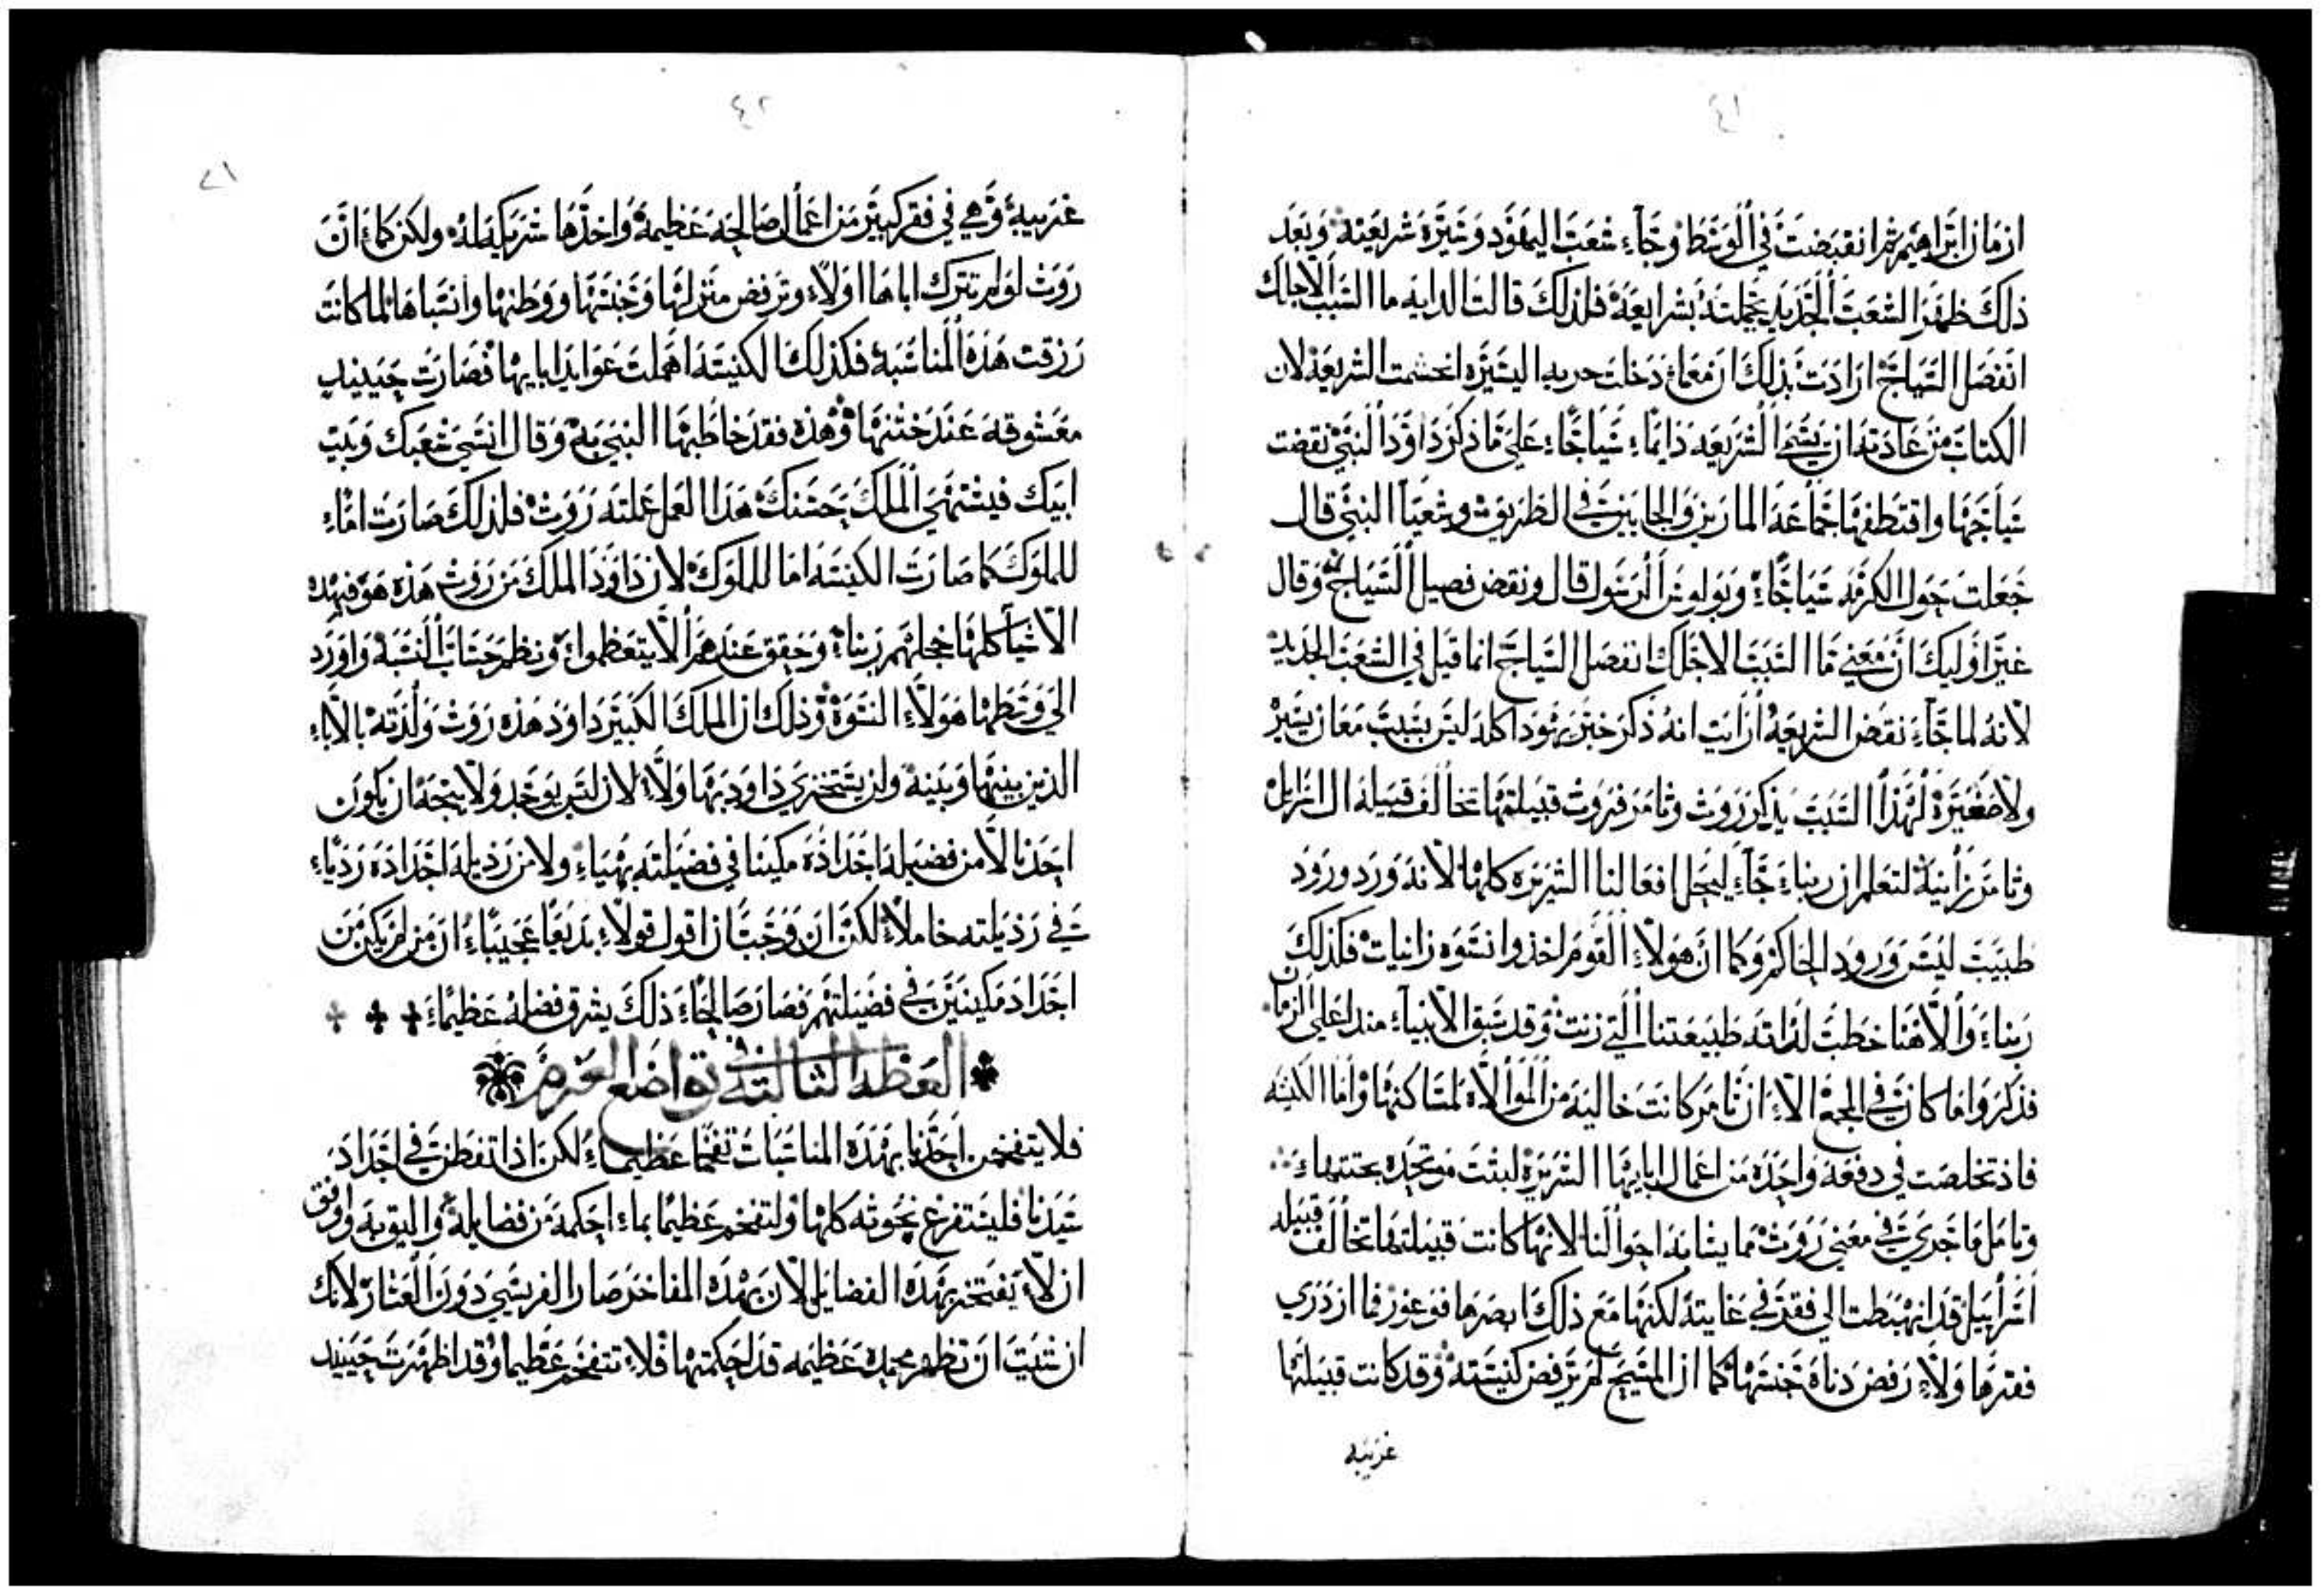 ٤١
ازمان ابراهيم ثم انقبضت في الوسط وجاء شعب اليهود وسيرة شريعته وبعد
ذلك ظهر الشعب الجديد بجملته بشرايعه فلذلك قالت الدايه ما السبب لاجلك
انفصل السياج ارادت بذلك ان معما دخلت حريه السيره انحسمت الشريعه لان
الكتاب من عادته ان يسمي الشريعه دايماء سياجاء علي ما ذكر داوود النبي نقضت
سياجها واقتطفها جماعة المارين والجايين في الطريق وشعيا النبي قال
جعلت حول الكرمه سياجاء وبولوس الرسول قال ونقض فصيل السياج وقال
غير اوليك ان معني ما السبب لاجلك انفصل السياج انما قيل في الشعب الجديد
لانه لما جاء نقض الشريعه ارايت انه ذكر خبر يهودا كله ليس بسبب معان يسيره
ولا صغيره لهذا السبب يذكر روث وثامر فروث قبيلتها تخالف قبيلة ال اسرايل
وثامر زانيه لتعلم ان ربناء جاء ليحل افعالنا الشريره كلها لانه ورد ورود
طبيب ليس ورود الحاكم وكما ان هولاء القوم اخذوا نسوه زانيات فكذلك
ربناء والاهنا خطب لذاته طبيعتنا التي زنت وقد سبق الانبياء منذ اعلي الزمان
فذكروا ما كان في المجمع الاء ان ثامر كانت خاليه من الموالاه لمساكنها واما الكنيسه
فاذ تخلصت في دفعه واحده من اعمال ابايها الشريره لبثت متحده بختنهاء
وتامل ما جري في معني روث مما يشابه احوالنا لانها كانت قبيلتها تخالف قبيله
اسراييل قد انهبطت الي فقر في غايته لكنها مع ذلك ابصرها فوعوز فما ازدري
فقرها ولاء رفض دناة جنسها كما ان المسيح لم يرفض كنيسته وقد كانت قبيلتها
غريبه
٤٢
٢١
غريبيه وهي في فقر كبير من اعمال صالحه عظيمه واخذها شريكه له ولكن كماء ان
روث لو لم تترك اباها اولاء وترفض منزلها وجنسها ووطنها وانسباها لما كانت
رزقت هذه المناسبه فكذلك الكنيسه اهملت عوايد ابايها فصارت حينيذ
معشوقه عند ختنها وهذه فقد خاطبها النبي به وقال انسي شعبك وبيت
ابيك فيشتهي الملك حسنك هذا العمل عملته روث فلذلك صارت اماء
للملوك كما صارت الكنيسه اما للملوك لان داوود الملك من روث هذه هو فبهذه
الاشيا كلها خجلهم ربناء وحقق عندهم الا يتعظموا ونظم حساب النسبه واورد
الي وسطها هولاء النسوة وذلك ان الملك الكبير داود هذه روث ولدته بالاباء
الذين بينها وبينه ولن يستخزي داود بها ولاء لان ليس يوجد ولا يتجه ان يكون
احدنا لا من فضيلة اجداده مكينا في فضيلته بهياء ولا من رذيلة اجداده رديا
في رذيلته خاملاء لكن ان وجب ان اقول قولاء بديعا عجيباء ان من لم يكن من
اجداد مكينين في فضيلتهم فصار صالحاء ذلك يشرق فضله عظيماء
العظه الثالثه في تواضع العزم
فلا يتفخمن احدنا بهذه المناسبات تفخما عظيماء لكن اذا تفطن في اجداد
سيدنا فليستفرغ نخوته كلها ولتفخم عظيما بماء احكمه من فضايله واليق به واوفق
ان لاء يفتخر بهذه الفضايل لان بهذه المفاخر صار الفريسي دون العشار لانك
ان شيت ان تظهر محمده عظيمه قد احكمتها فلاء تتفخم عظيما وقد اظهرت حينيذ